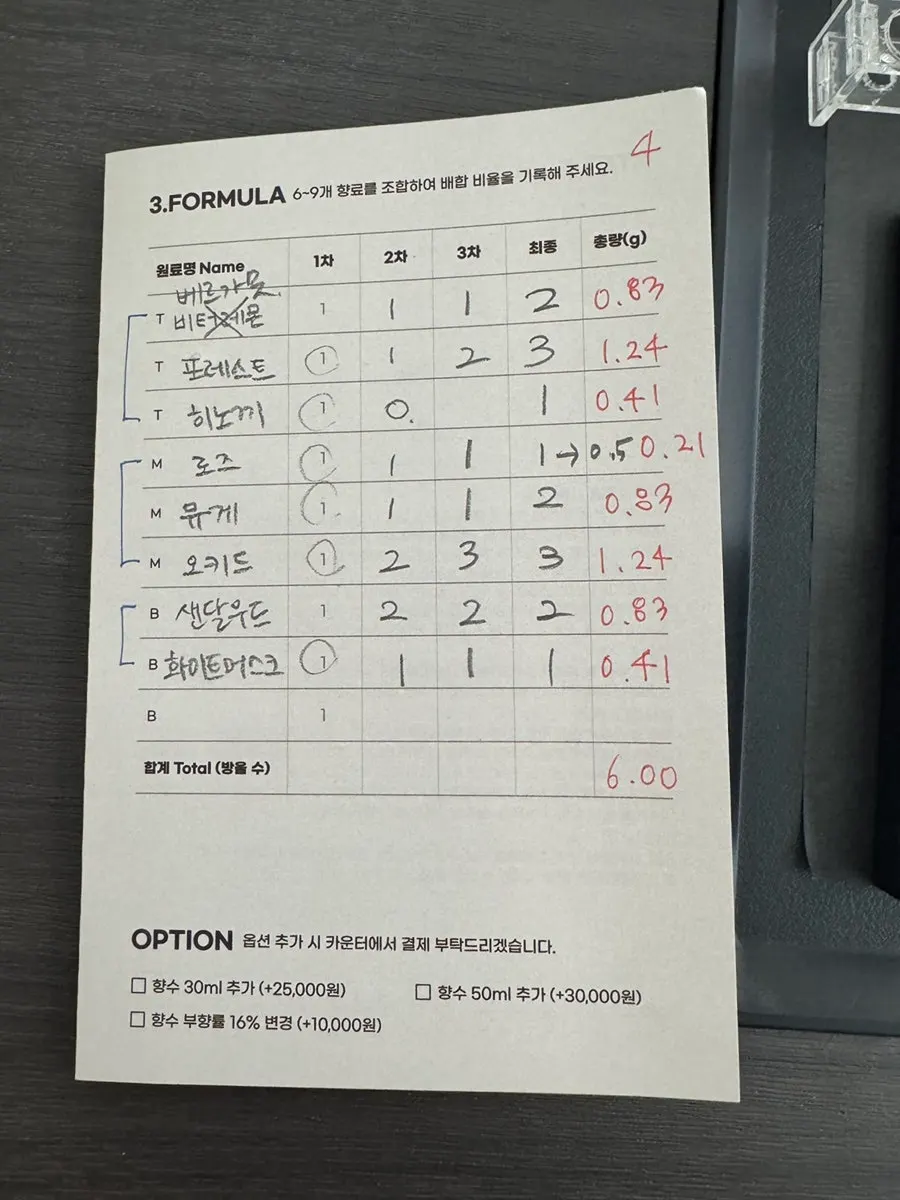 4
3.FORMULA 6~9개 향료를 조합하여 배합 비율을 기록해 주세요.
원료명 Name 1차 2차 3차 최종 총량(g)
베르가못
T 비터레몬 1 1 1 2 0.83
T 포레스트 1 1 2 3 1.24
T 히노끼 1 0. 1 0.41
M 로즈 1 1 1 1→0.5 0.21
M 뮤게 1 1 1 2 0.83
M 오키드 1 2 3 3 1.24
B 샌달우드 1 2 2 2 0.83
B 화이트머스크 1 1 1 1 0.41
B 1
합계 Total (방울 수) 6.00
OPTION 옵션 추가 시 카운터에서 결제 부탁드리겠습니다.
☐ 향수 30ml 추가 (+25,000원) ☐ 향수 50ml 추가 (+30,000원)
☐ 향수 부향률 16% 변경 (+10,000원)